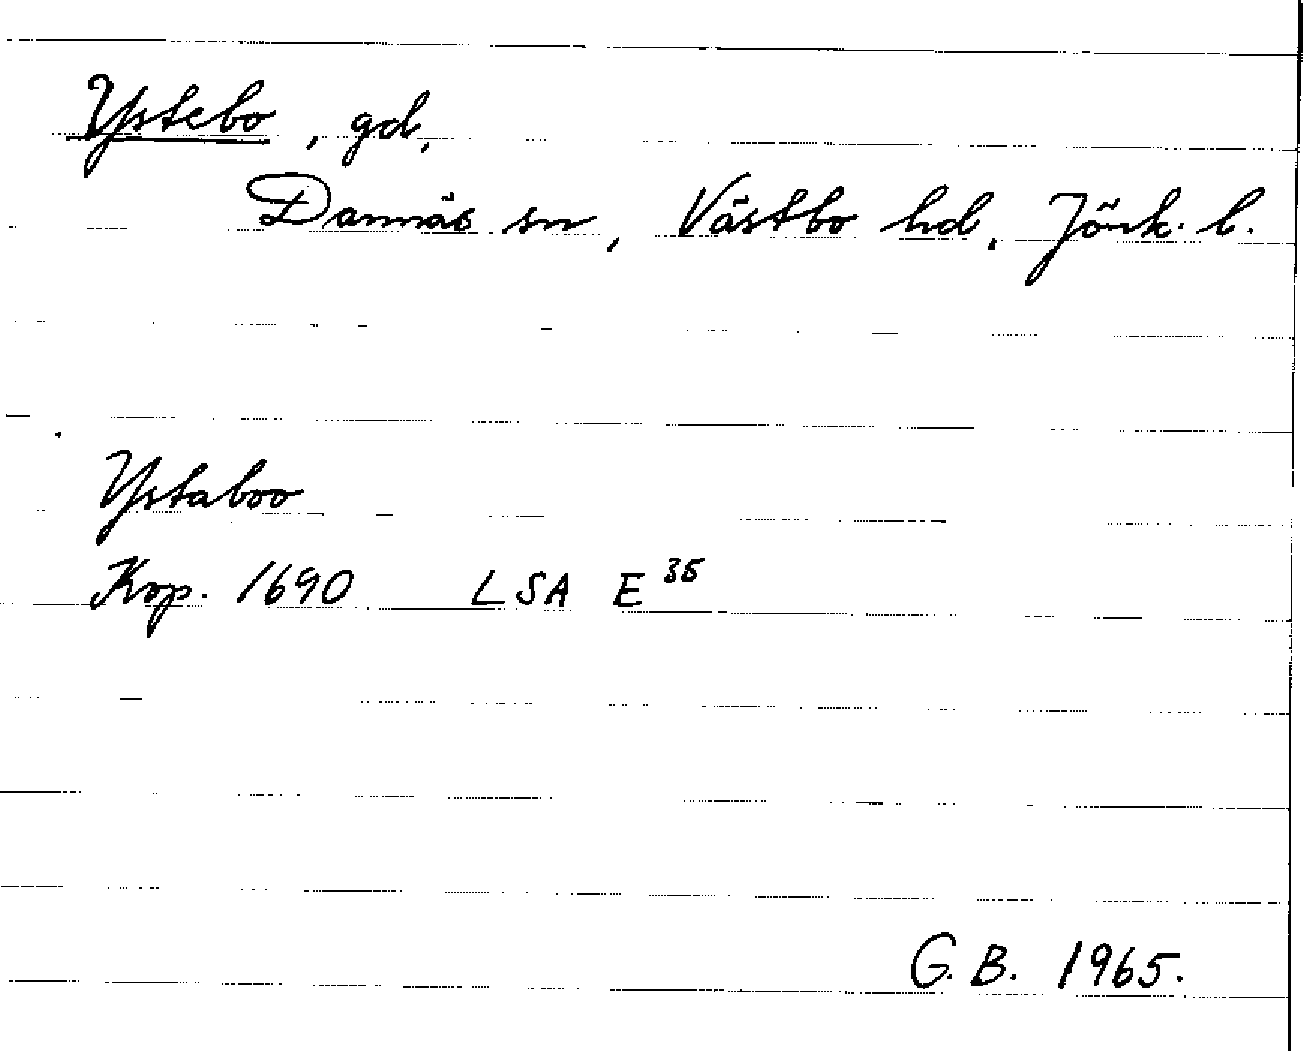 Ystebo, gd,
Dannäs sn, Västbo hd. Jönk. l.
Ystaboo
Kop. 1690 LSA E 36
G. B. 1965.